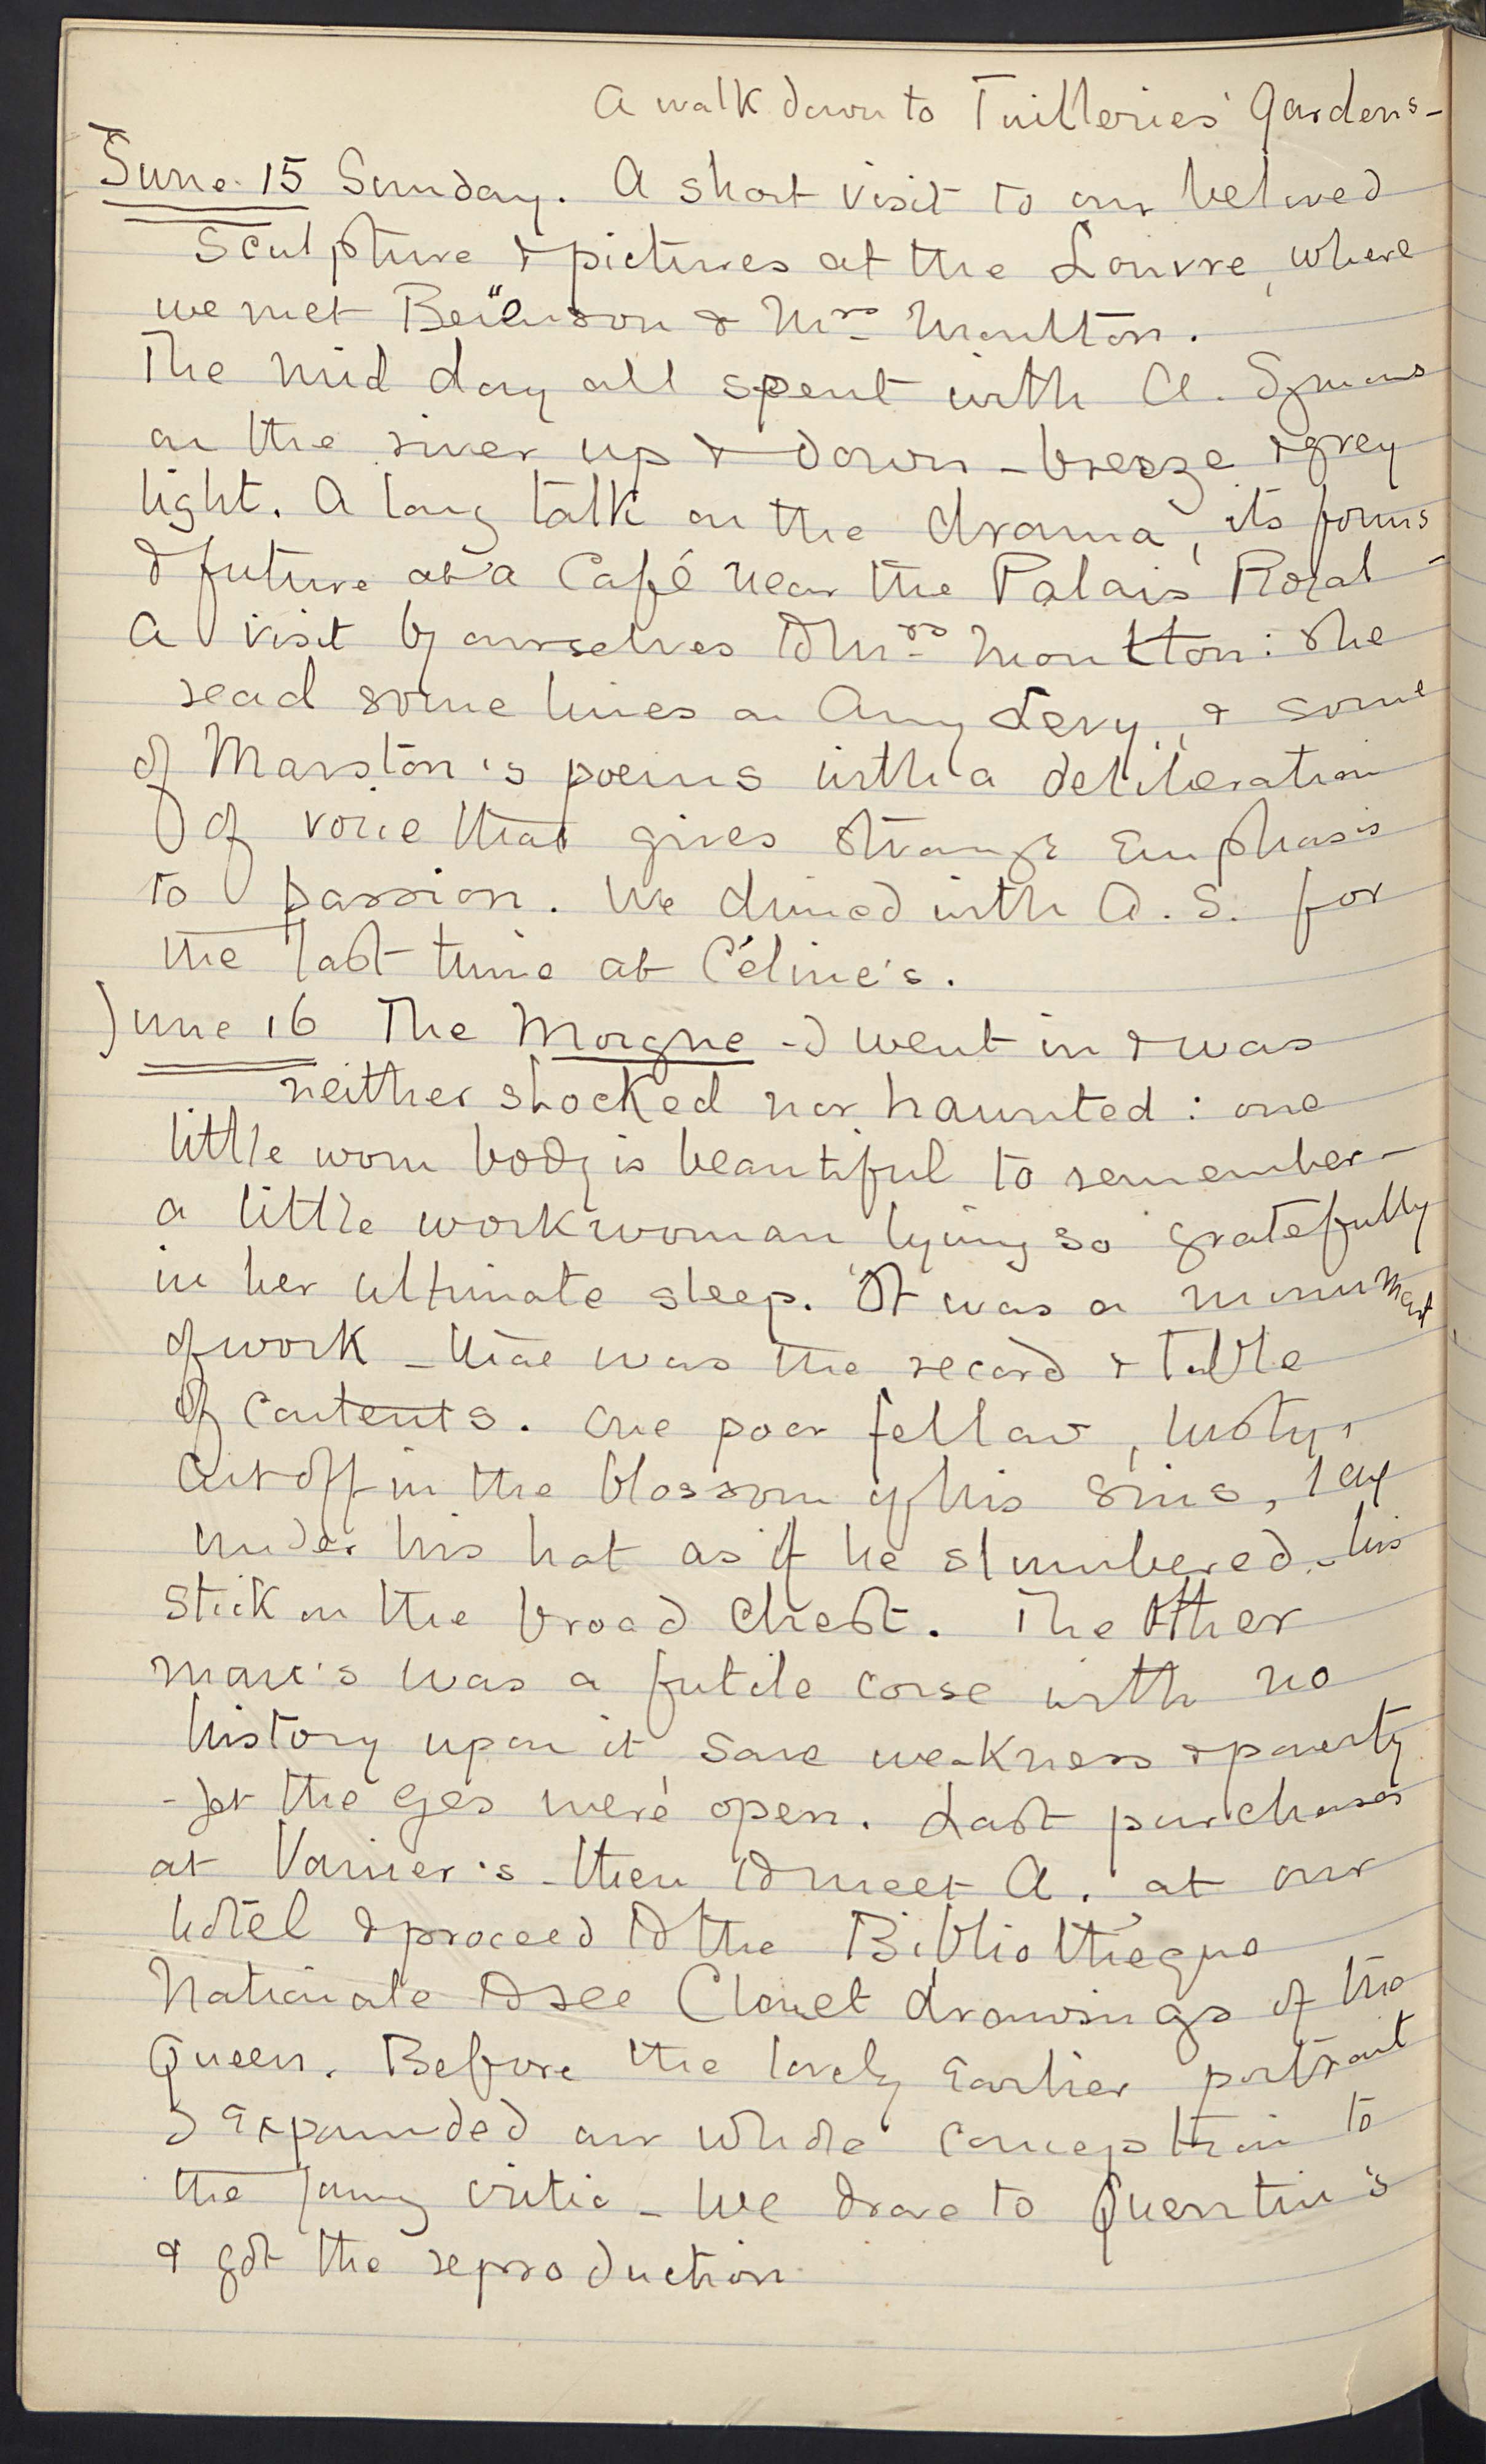 A walk down to Tuilleries' Gardens -
June 15 Sunday. A short visit to our beloved
sculpture & pictures at the Louvre, where
we met Berenson & Mrs Moulton.
The mid day all spent with A. Symons
on the river up & down - breeze & grey
light. A long talk on the drama, its forms
& future at a Café near the Palais Royal -
A visit by ourselves to Mrs Moulton: she
read some lines on Amy Levy, & some
of Marston's poems with a deliberation
of voice that gives strange emphasis
to passion. We dined with A. S. for
the last time at Céline's.
June 16 The Morgue - I went in & was
neither shocked nor haunted: one
little worn body is beautiful to remember -
a little workwoman lying so gratefully
in her ultimate sleep. It was a monument
of work - that was the record & table
of contents. One poor fellow, lusty,
cut off in the blossom of his sins, lay
under his hat as if he slumbered - his
stick on the broad chest. The other
man's was a futile corse with no
history upon it save weakness & poverty
- yet the eyes were open. Last purchases
at Vanier's - then to meet A. at our
hotel & proceed to the Bibliothèque
Nationale to see Clouet drawings of the
Queen. Before the lovely earlier portrait
I expounded our whole conception to
the young critic - We drove to Quentin's
& got the reproduction